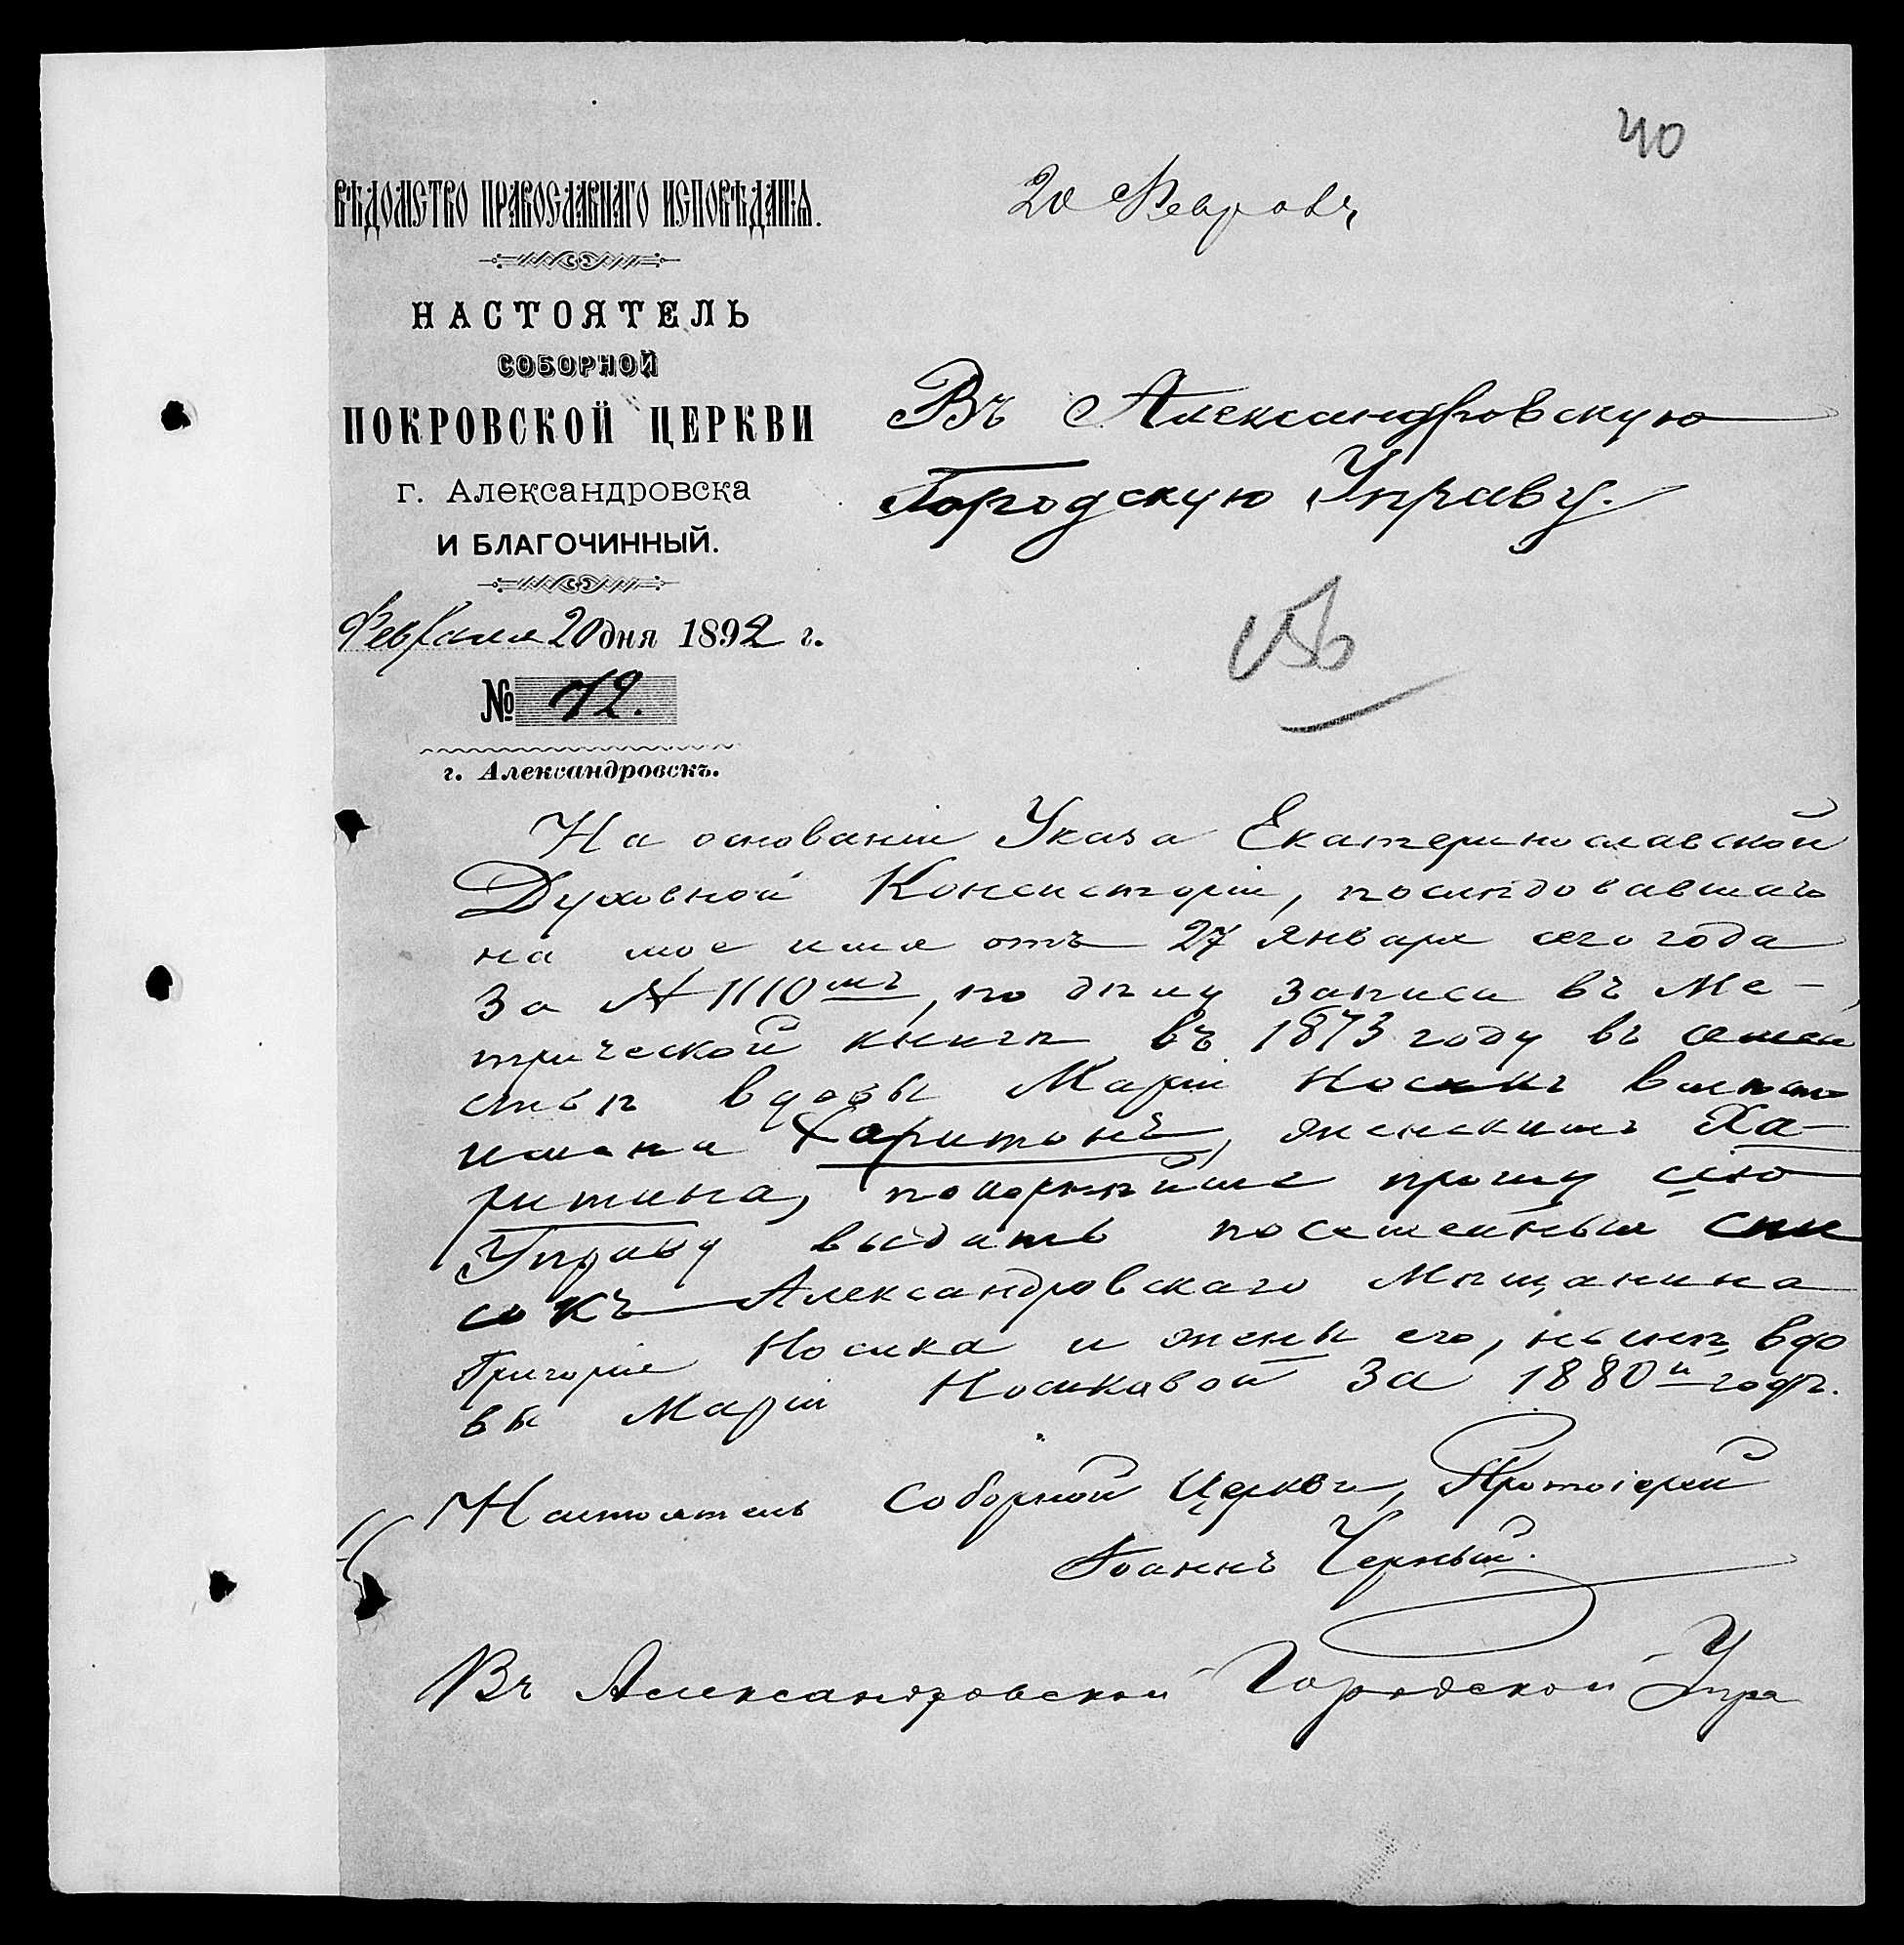 40
20 Феврал
ВѢДОМСТВО ПРАВОСЛАВНАГО ИСПОВѢДАНІЯ.
НАСТОЯТЕЛЬ
СОБОРНОЙ
ПОКРОВСКОЙ ЦЕРКВИ
г. Александровска
И БЛАГОЧИННЫЙ.
Февраля 20 дня 1892 г.
№ 72.
г. Александровскъ.
Въ Александровскую
Городскую Управу.
На основаніи Указа Екатеринославской
Духовной Консисторіи, послѣдовавшаго
на мое имя отъ 27 Января сего года
за № 1110мъ, по дѣлу записи въ Ме-
трической книгѣ въ 1873 году въ семей
ствѣ вдовы Маріи Носикъ вмѣсто
имени Харитонъ, женскимъ Ха-
ритина, покорнѣйше прошу сію
Управу выдать посемейный спи
сокъ Александровскаго Мѣщанина
Григорія Носика и жены его, нынѣ вдо
вы Маріи Носиковой за 1880й годъ.
Настоятель Соборной Церкви, Протоіерей
Іоаннъ Черный.
Въ Александровской Городской Упра